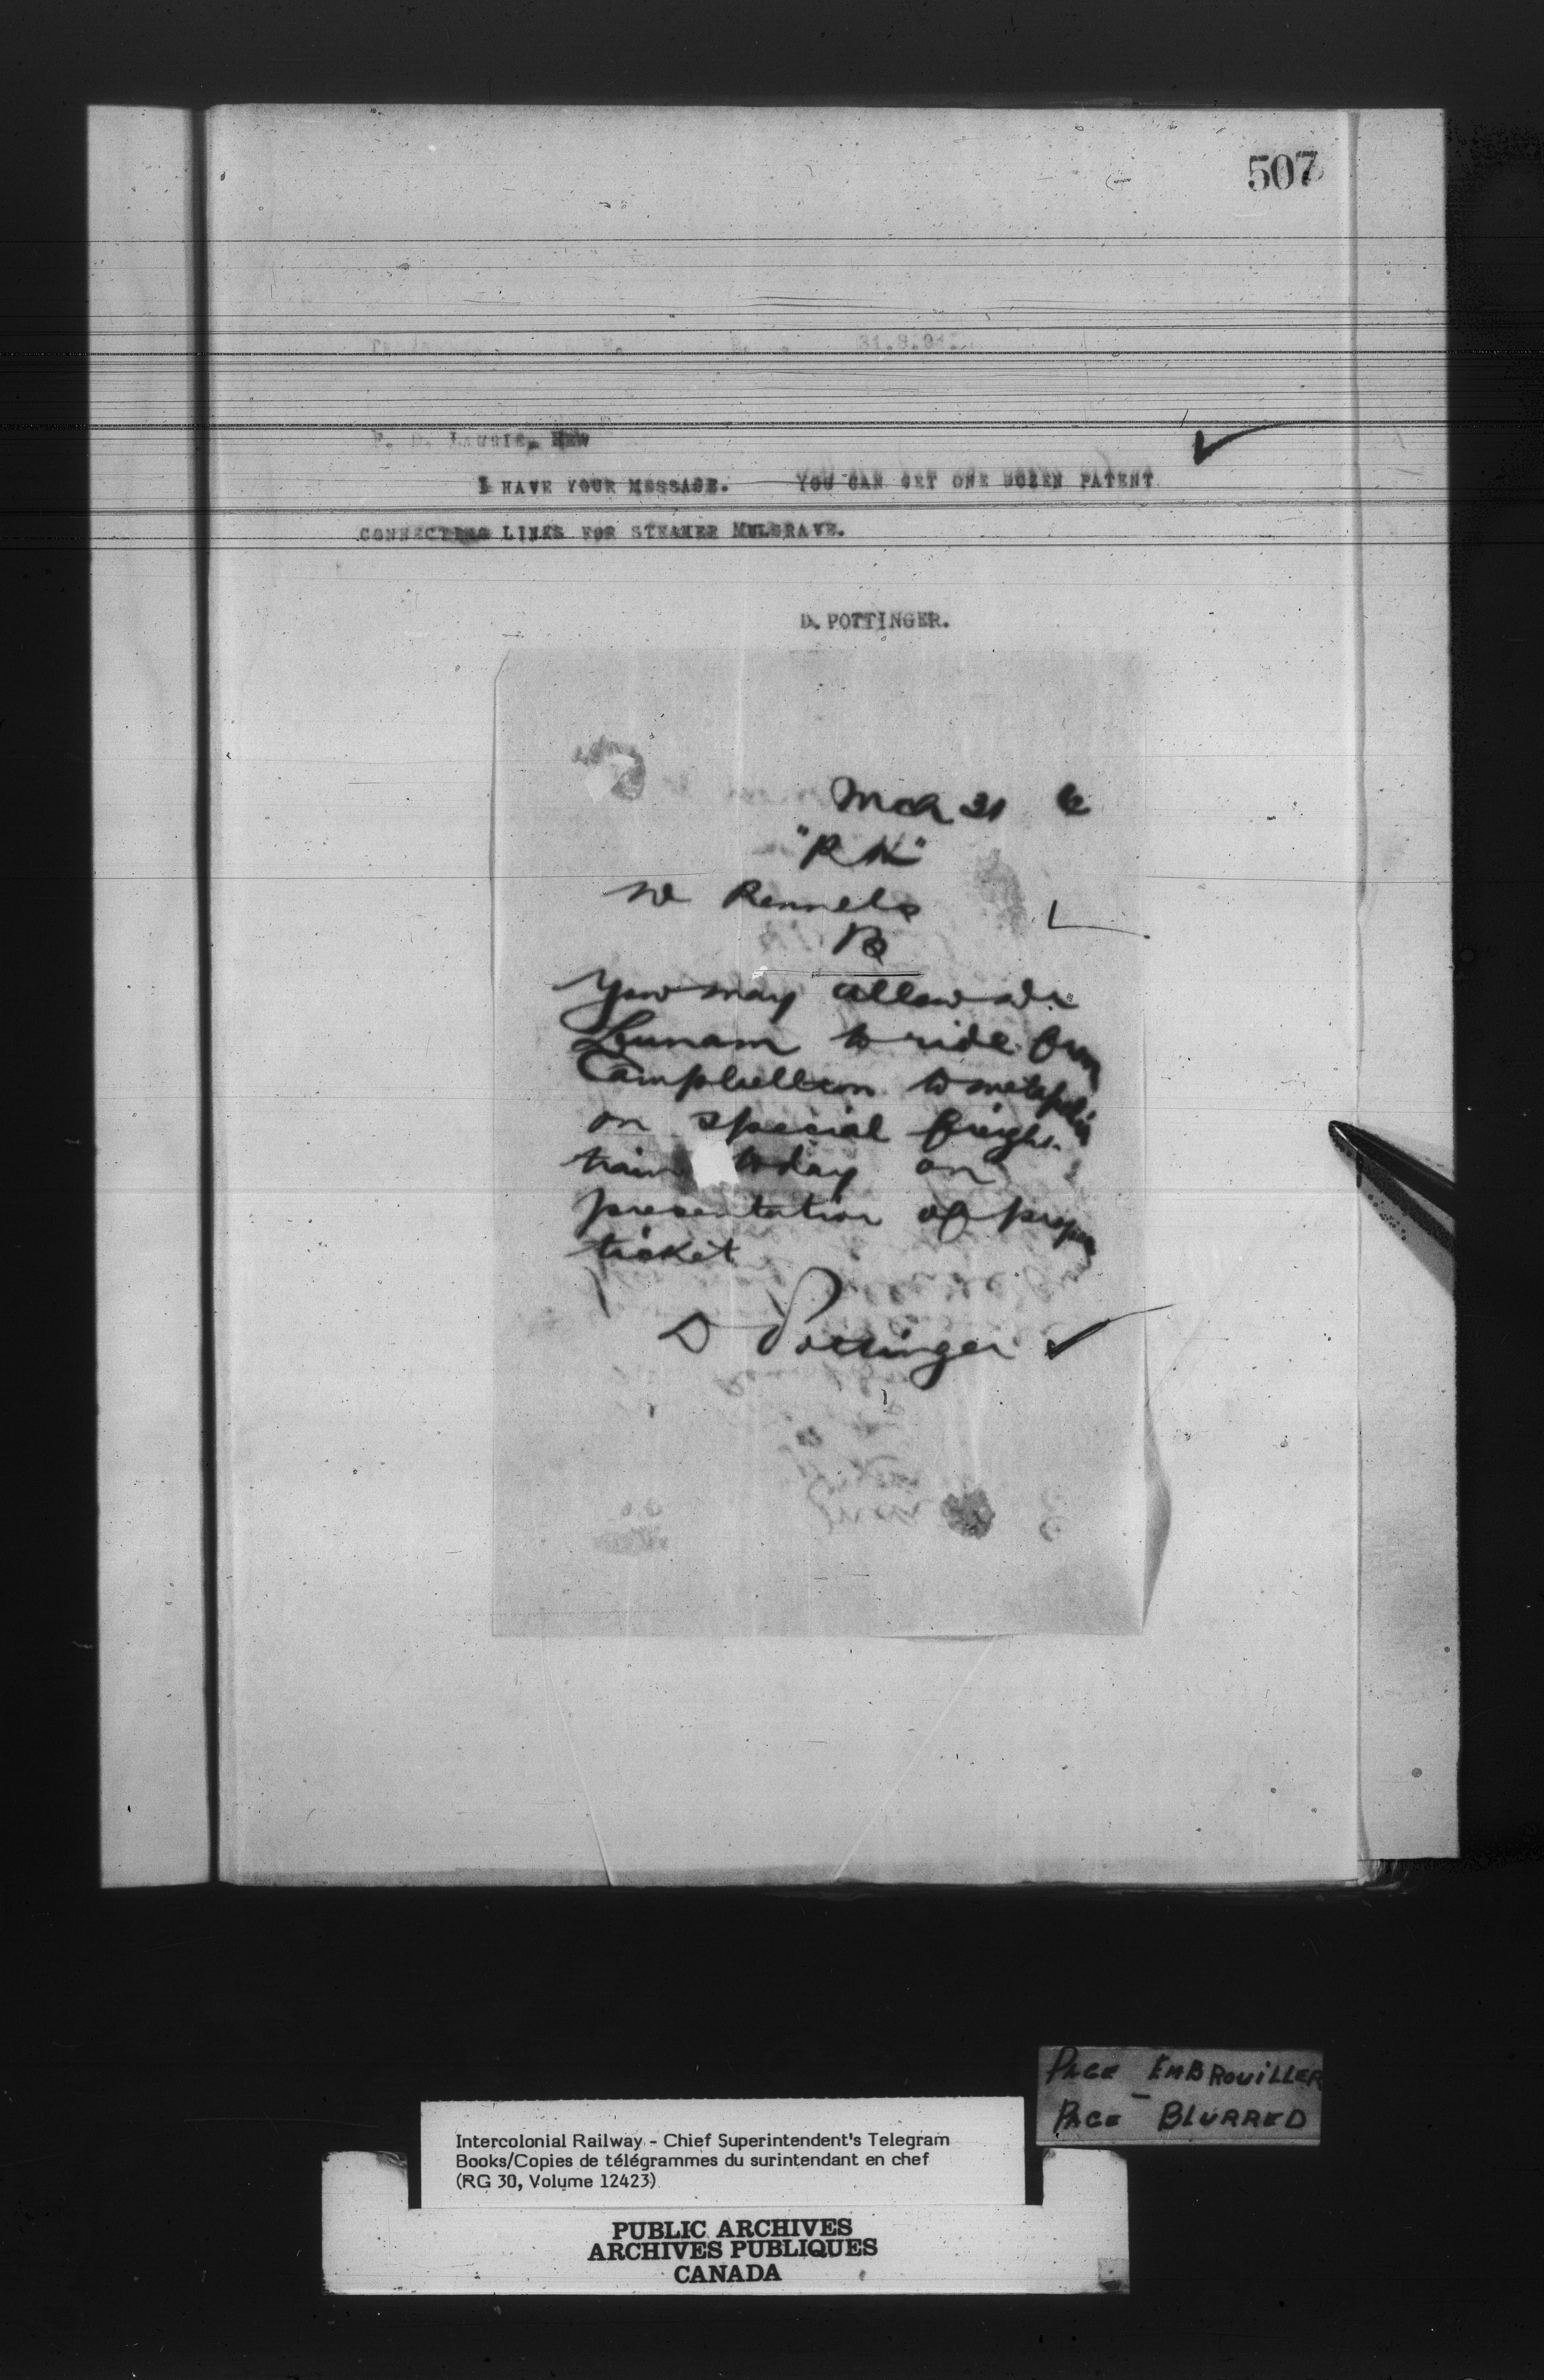 507
31.3.9
F. D. LAURIE, NEW
I HAVE YOUR MESSAGE. YOU CAN GET ONE DOZEN PATENT
CONNECTING LINKS FOR STEAMER MULGRAVE.
D. POTTINGER.
Mch 31
"RK"
Rennels
You may allow
to ride from
Campbellton to
on special freight
train today on
presentation of proper
ticket
D Pottinger
PAGE EMBROUILLER
PAGE BLURRED
Intercolonial Railway - Chief Superintendent's Telegram
Books/Copies de télégrammes du surintendant en chef
(RG 30, Volume 12423)
PUBLIC ARCHIVES
ARCHIVES PUBLIQUES
CANADA